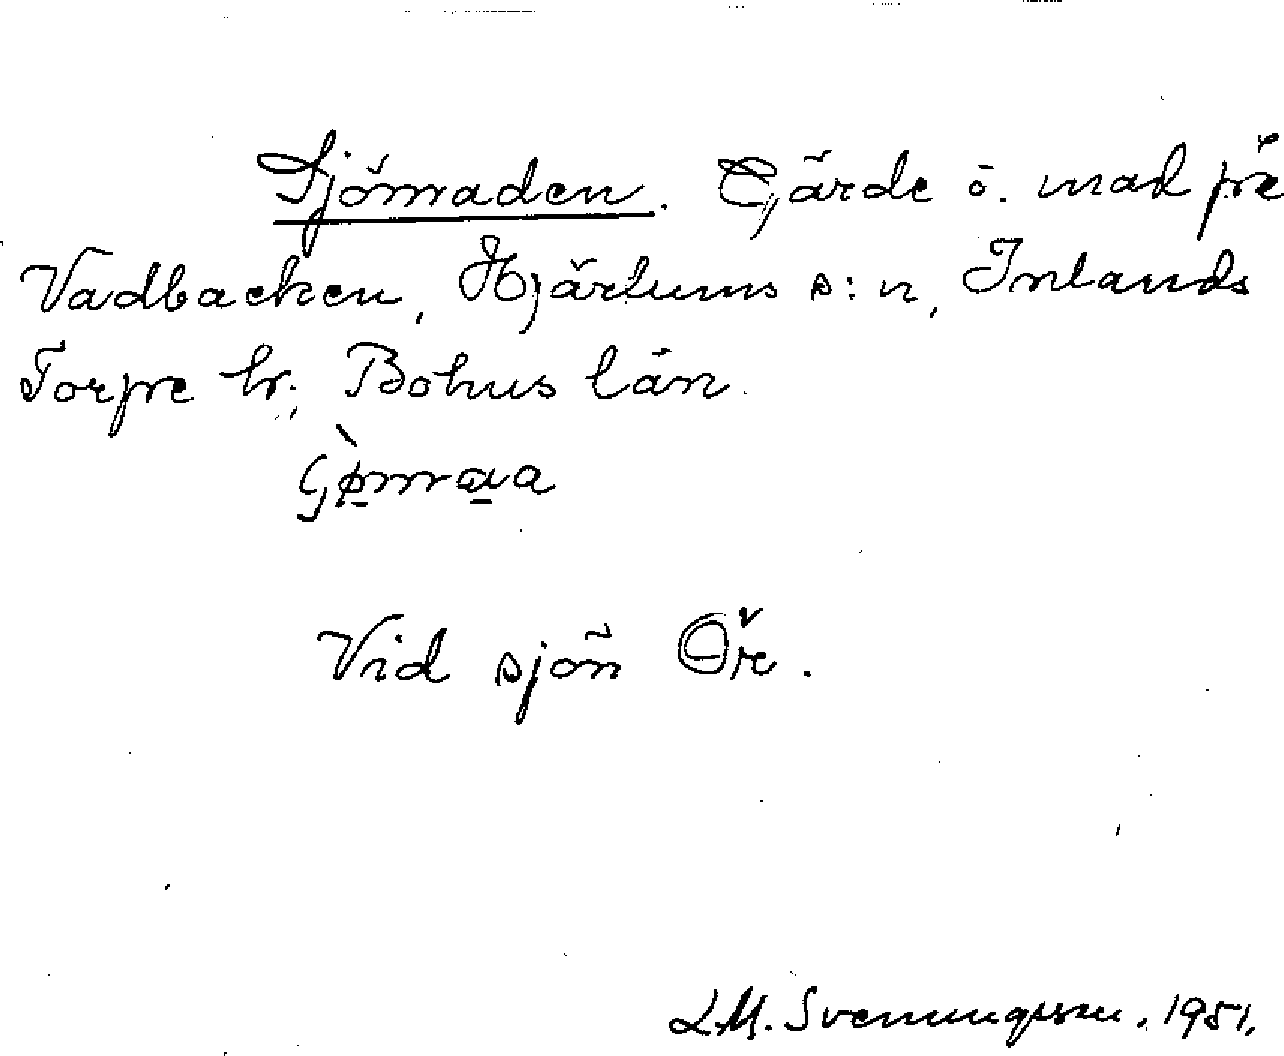 Sjömaden. Gärde o. mad på
Vadbacken, Hjärtums s:n, Inlands
Torpe hr, Bohus län.
Vid sjön Ör.
L.M. Svenungsson. 1951.